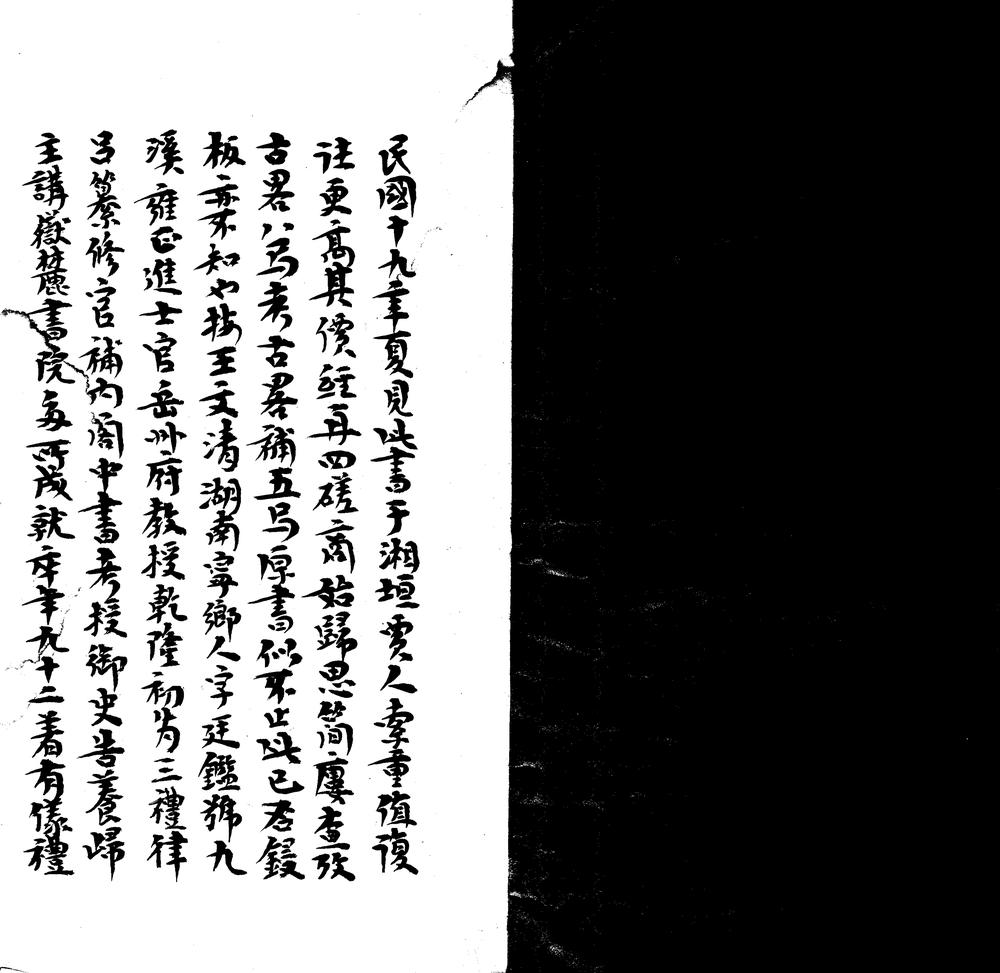 民國十九年夏見此書于湘垣賈人索重值復
往更高其價經再四磋商始歸思簡廔查攷
古畧八弓考古畧補五弓原書似不止此已否鋟
板亦不知也按王文清湖南寧鄉人字廷鑑號九
溪雍正進士官岳州府教授乾隆初為三禮律
呂纂修官補內閣中書考授御史告養歸
主講嶽麓書院多所成就卒年九十二著有儀禮